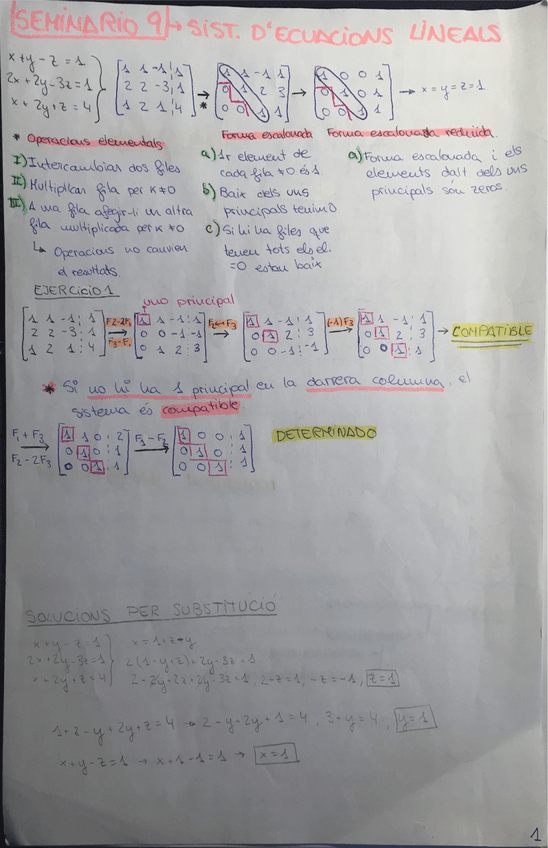 SEMINARIO 9 → SIST. D'ECUACIONS LINEALS
x+y-z=1
2x+2y-3z=1
x+2y+z=4
1 1 -1 1
2 2 -3 1
1 2 1 4
→
*
1 1 -1 1
0 1 2 3
0 0 1 1
→
1 0 0 1
0 1 0 1
0 0 1 1
→ x=y=z=1
* Operacions elementals
I) Intercambiar dos files
II) Multiplicar fila per K≠0
III) A una fila afegir-li un altra
fila multiplicada per K≠0
↳ Operacions no canvien
el resultats.
Forma escalonada
a) 1r element de
cada fila ≠0 és 1.
b) Baix dels uns
principals tenim 0
c) Si hi ha files que
tenen tots els el.
=0 estan baix
Forma escalonada reduida
a) Forma escalonada i els
elements dalt dels uns
principals són zeros.
EJERCICIO 1
uno principal
1 1 -1 1
2 2 -3 1
1 2 1 4
F2-2F1
→
F3-F1
1 1 -1 1
0 0 -1 -1
0 1 2 3
F2↔F3
→
1 1 -1 1
0 1 2 3
0 0 -1 -1
(-1)F3
→
1 1 -1 1
0 1 2 3
0 0 1 1
→ COMPATIBLE
* Si no hi ha 1 principal en la darrera columna, el
sistema és compatible.
F1+F3
→
F2-2F3
1 1 0 2
0 1 0 1
0 0 1 1
F1-F2
→
1 0 0 1
0 1 0 1
0 0 1 1
DETERMINADO
SOLUCIONS PER SUBSTITUCIÓ
x+y-z=1 x=1+z-y
2x+2y-3z=1 2(1-y+z)+2y-3z=1
x+2y+z=4 2-2y+2z+2y-3z=1, 2-z=1, -z=-1, z=1
1+z-y+2y+z=4 → 2-y+2y+1=4, 3+y=4, y=1
x+y-z=1 → x+1-1=1 → x=1
1